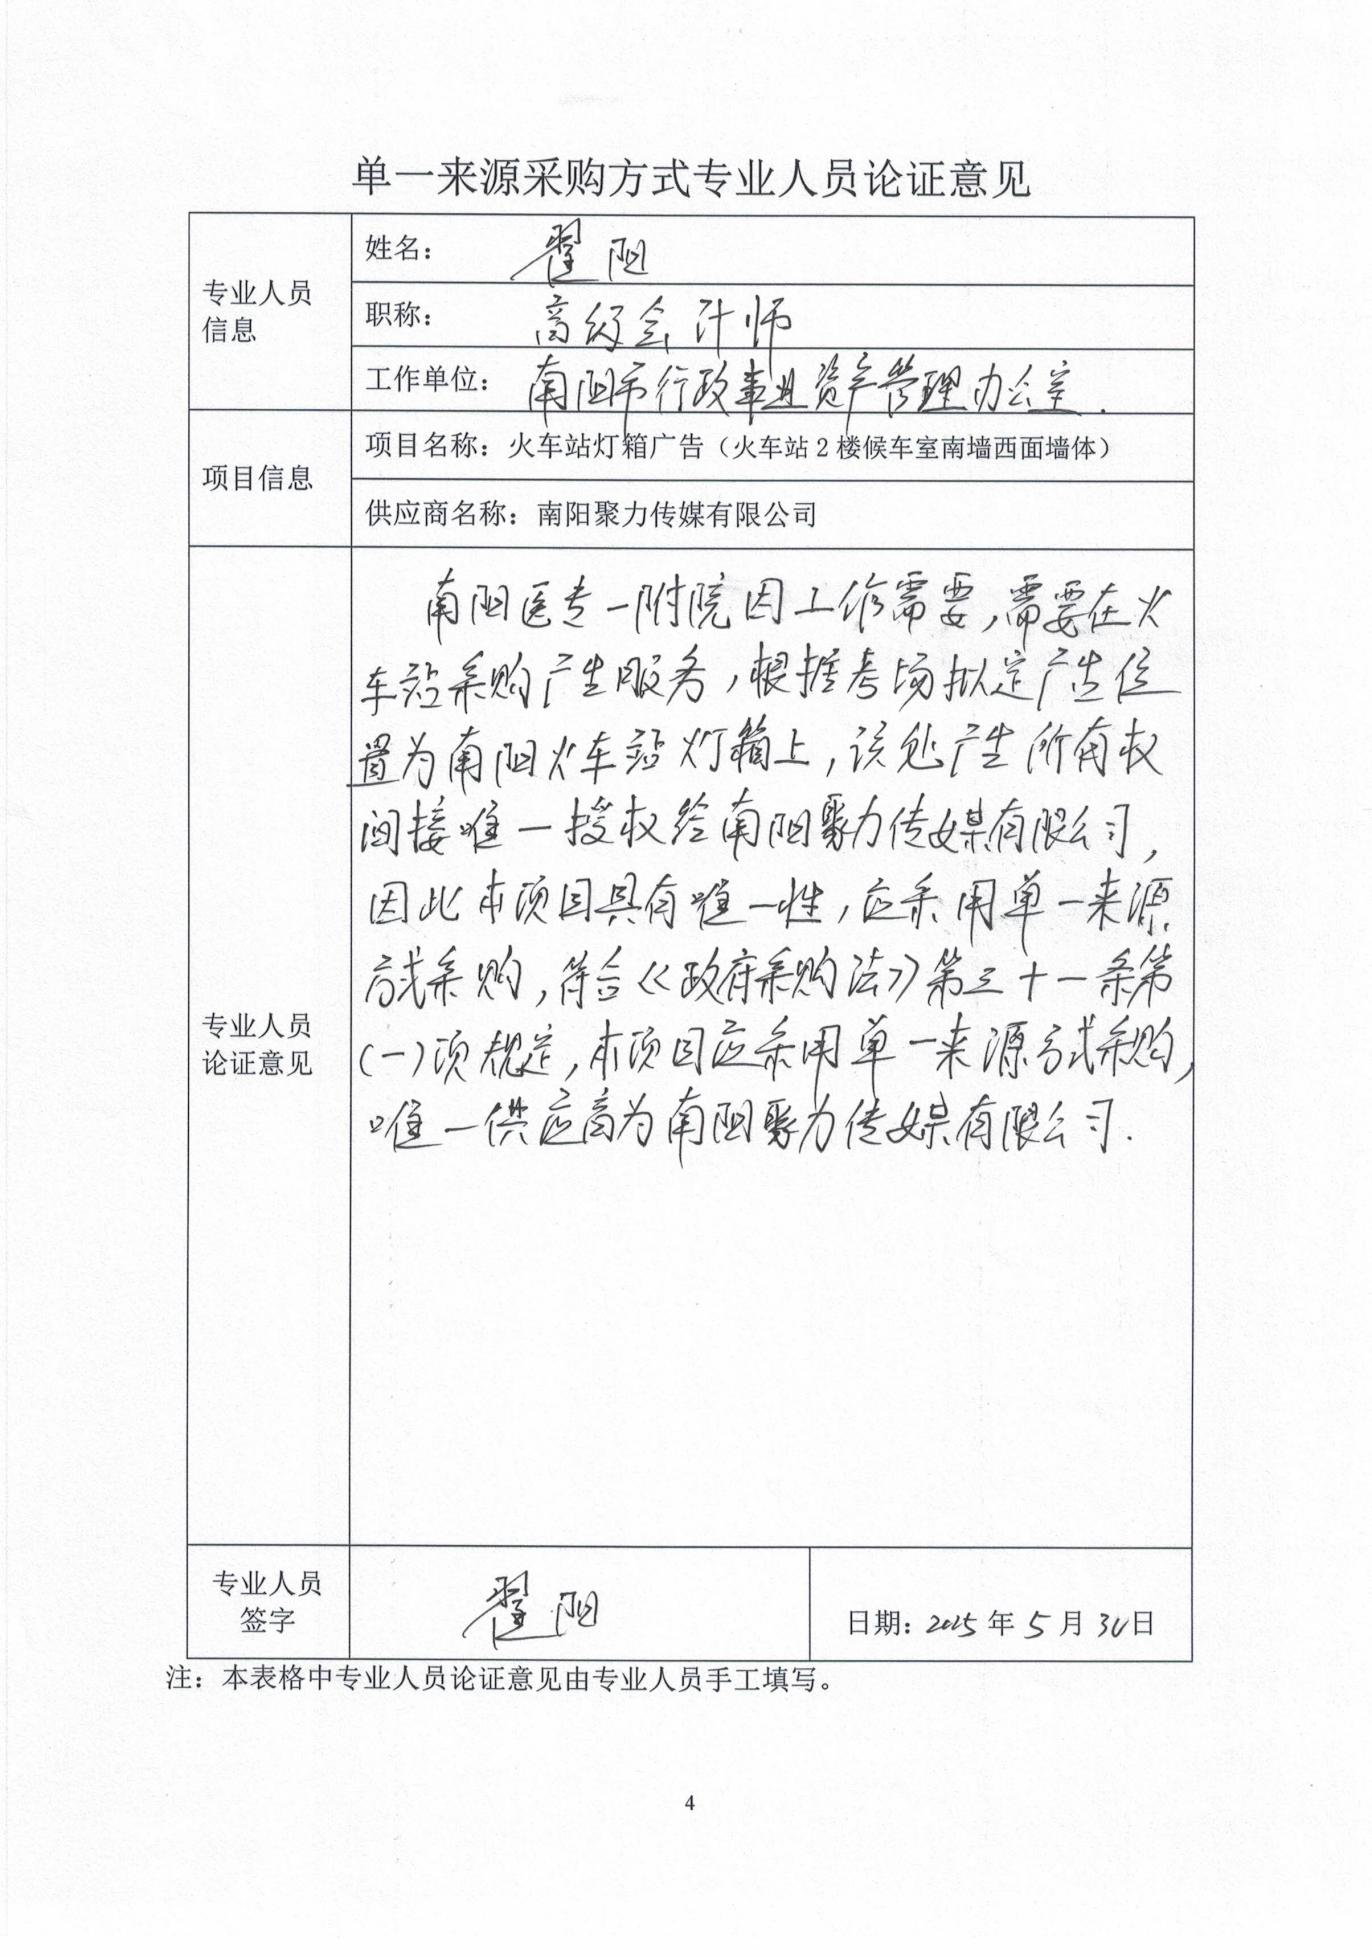 单一来源采购方式专业人员论证意见
专业人员
信息
姓名：翟阳
职称：高级会计师
工作单位：南阳市行政事业资产管理办公室.
项目信息
项目名称：火车站灯箱广告（火车站2楼候车室南墙西面墙体）
供应商名称：南阳聚力传媒有限公司
专业人员
论证意见
南阳医专一附院因工作需要，需要在火
车站采购广告服务，根据考场拟定广告位
置为南阳火车站灯箱上，该处广告所有权
间接唯一授权给南阳聚力传媒有限公司，
因此本项目具有唯一性，应采用单一来源
方式采购，符合《政府采购法》第三十一条第
（一）项规定，本项目应采用单一来源方式采购，
唯一供应商为南阳聚力传媒有限公司.
专业人员
签字
翟阳
日期：2025年5月30日
注：本表格中专业人员论证意见由专业人员手工填写。
4